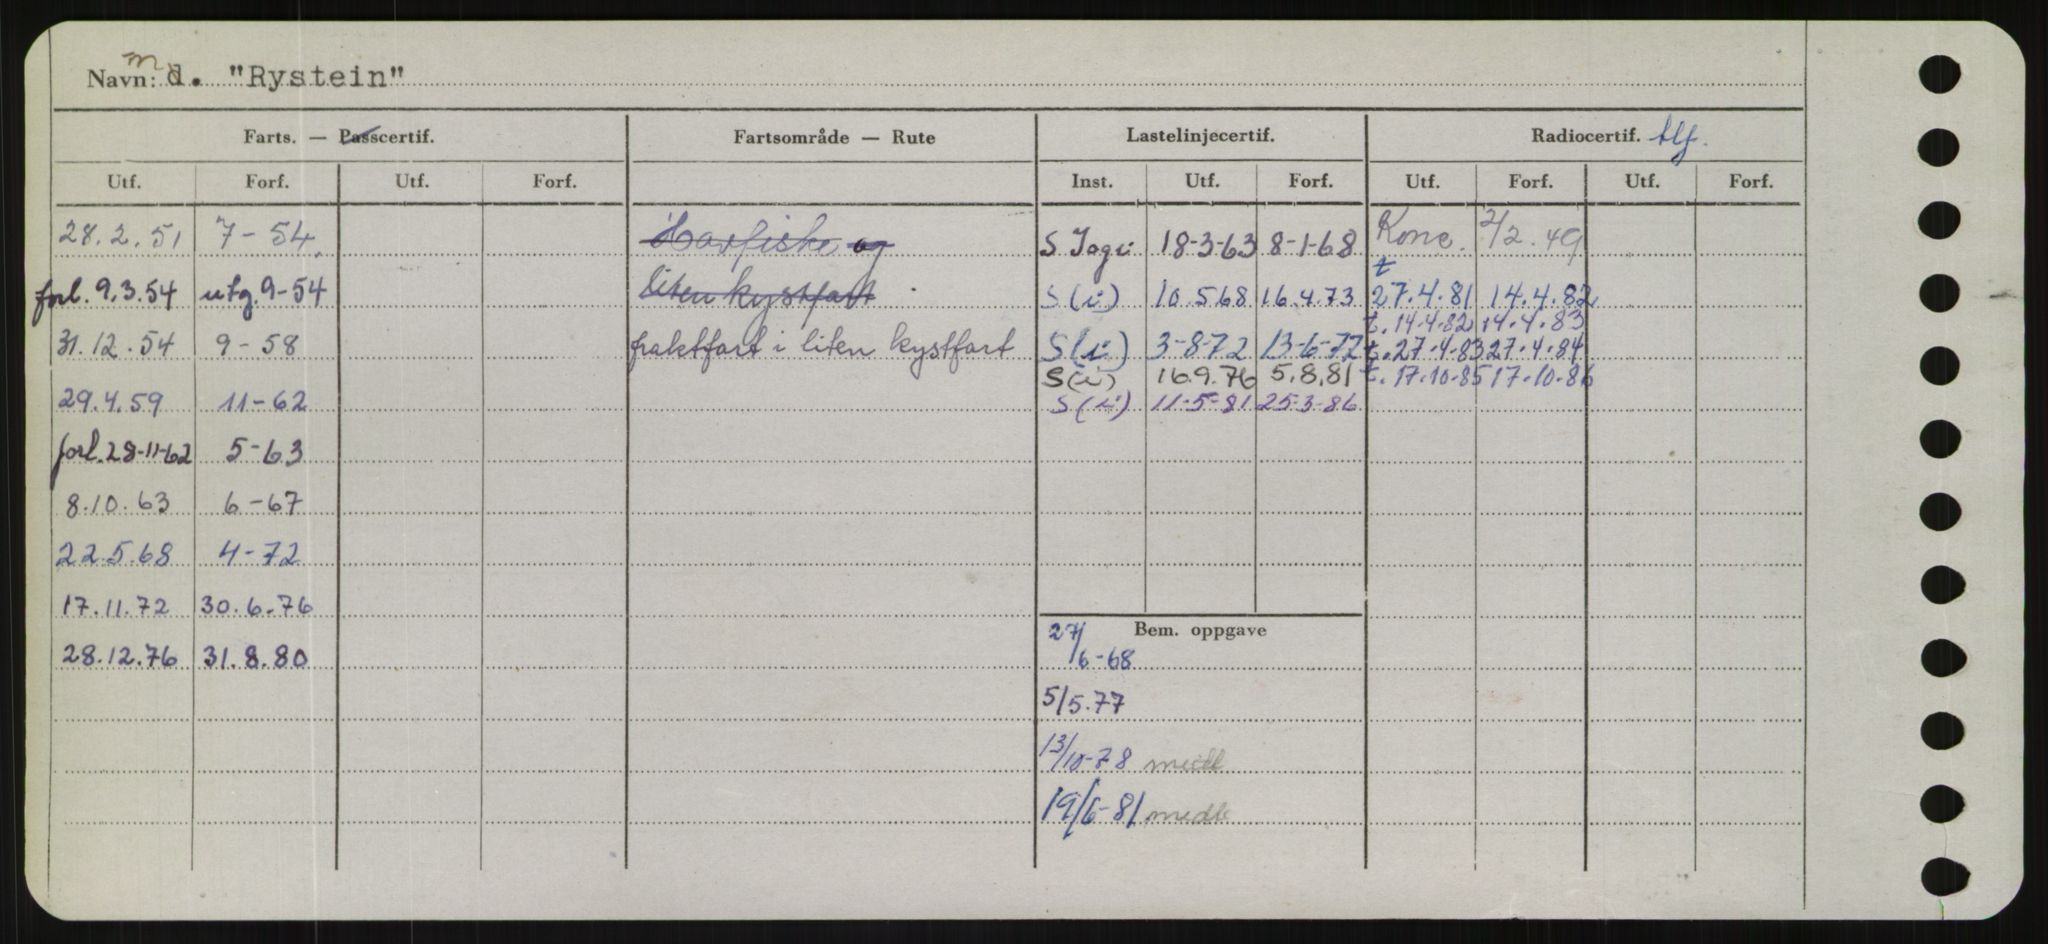 Navn: m d. "Rystein"
Farts. — Passcertif. Fartsområde — Rute Lastelinjecertif. Radiocertif. tlf.
Utf. Forf. Utf. Forf. Inst. Utf. Forf. Utf. Forf. Utf. Forf.
28.2.51 7-54. Havfiske og S Jogi 18-3-63 8-1-68 Konc. 2/2.49
forl. 9.3.54 utg. 9-54 liten kystfart S(i) 10.5.68 16.4.73 t 27.4.81 14.4.82
t. 14.4.82 14.4.83
31.12.54 9-58 fraktfart i liten kystfart S(i) 3-8-72 13-6-77 t. 27.4.83 27.4.84
S(i) 16.9.76 5.8.81 t. 17.10.85 17.10.86
29.4.59 11-62 S(i) 11-5-81 25-3-86
forl. 28-11-62 5-63
8.10.63 6-67
22.5.68 4-72
17.11.72 30.6.76
Bem. oppgave
28.12.76 31.8.80 27/6-68
5/5.77
13/10-78 medl
19/6-81 medb